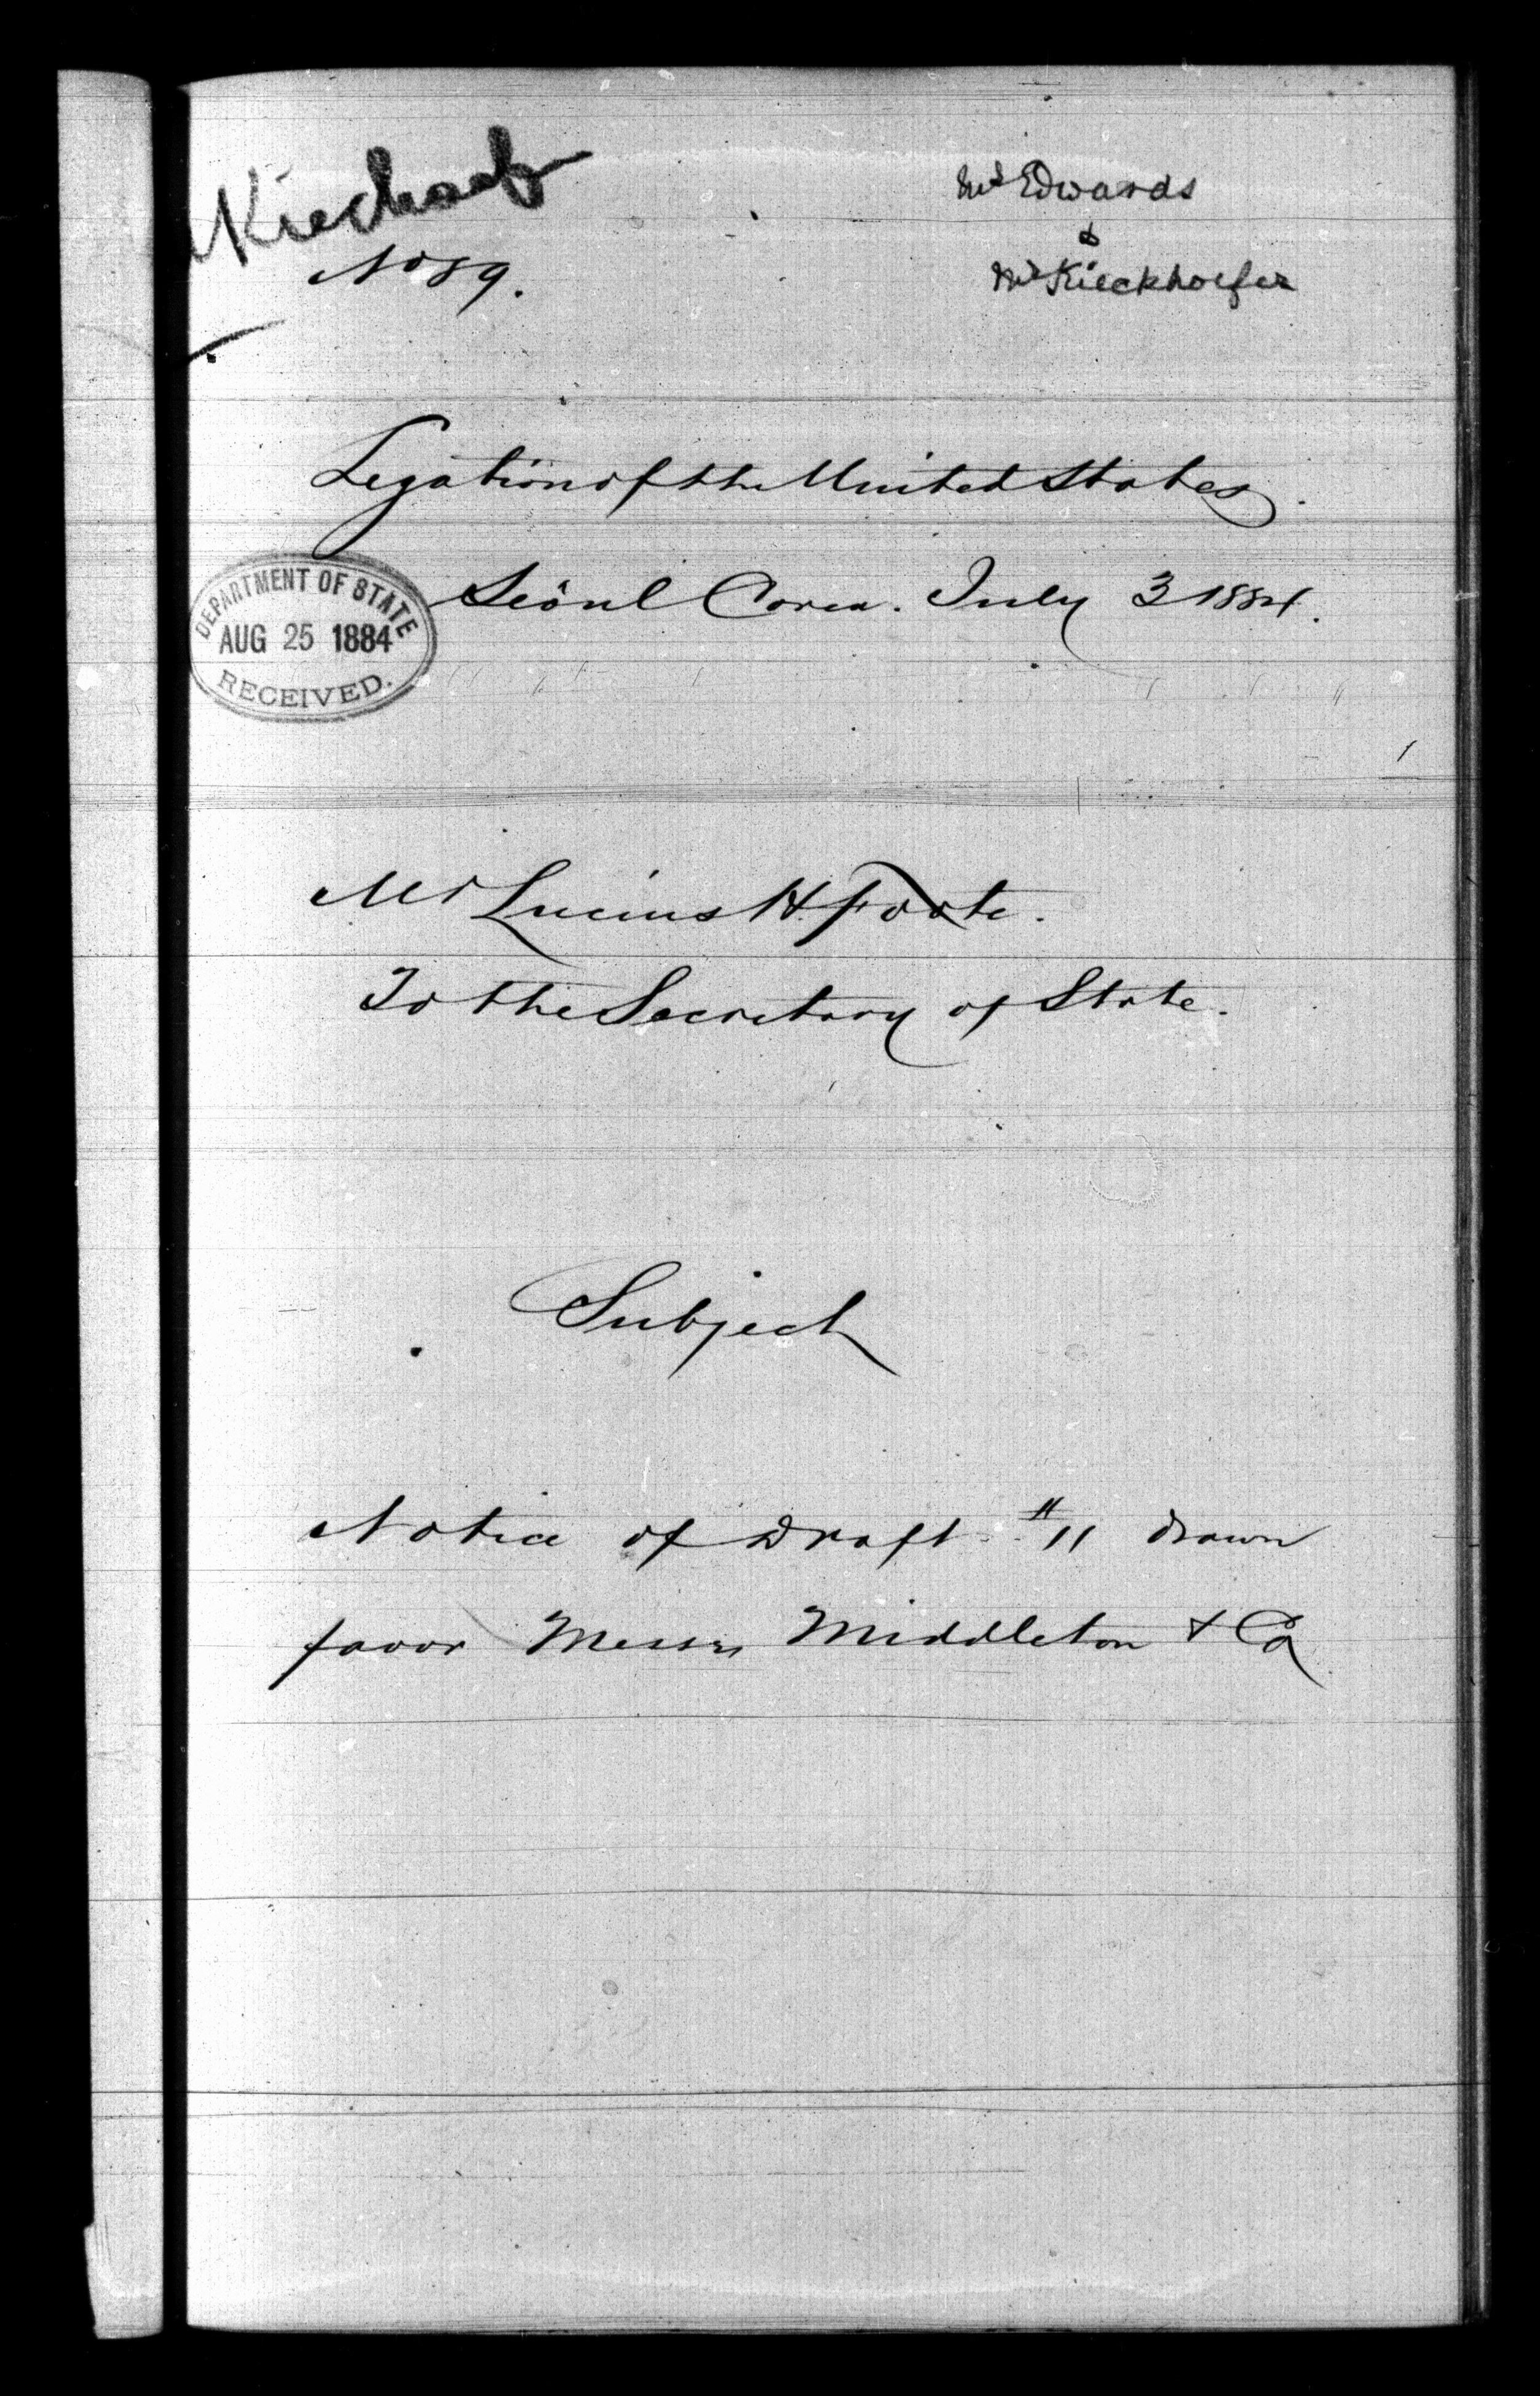 Mr Edwards
&
Mr Kieckhoefer
No 89.
Legation of the United States.
Seoul Corea. July 3 1884.
DEPARTMENT OF STATE
AUG 25 1884
RECEIVED.
Mr Lucius H. Foote.
To the Secretary of State.
Subject
Notice of Draft #11 drawn
favor Messrs Middleton & Co